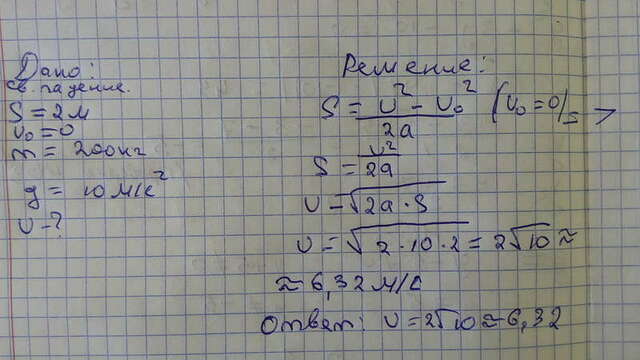 Дано:
св. падение.
S = 2м
υ₀ = 0
m = 200кг
g = 10 м/с²
υ - ?
Решение:
S = υ² - υ₀² / 2a (υ₀ = 0) =>
S = υ² / 2a
υ = √2a·S
υ = √2·10·2 = 2√10 ≈
≈ 6,32 м/с
Ответ: υ = 2√10 ≈ 6,32